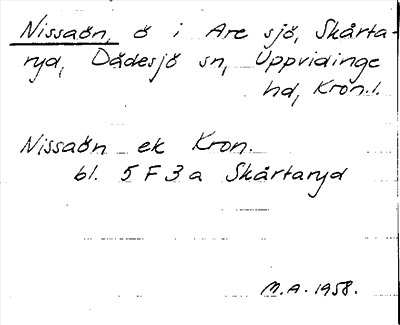 Nissaön, ö i Are sjö, Skårta-
ryd, Dädesjö sn, Uppvidinge
hd, Kron.l.
Nissaön ek Kron.
bl. 5 F 3 a Skårtaryd
M.A. 1958.